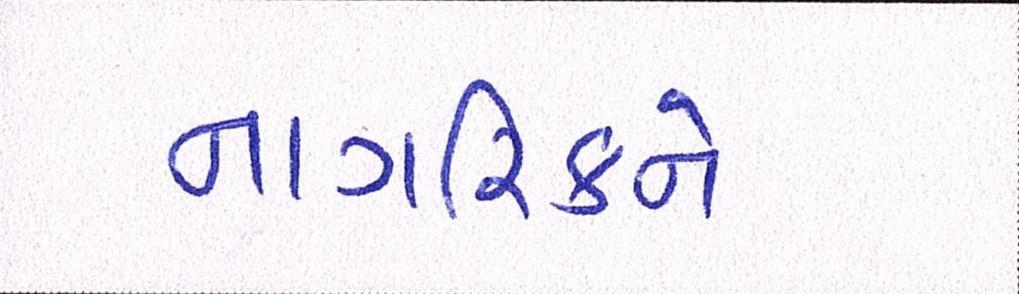 નાગરિકને